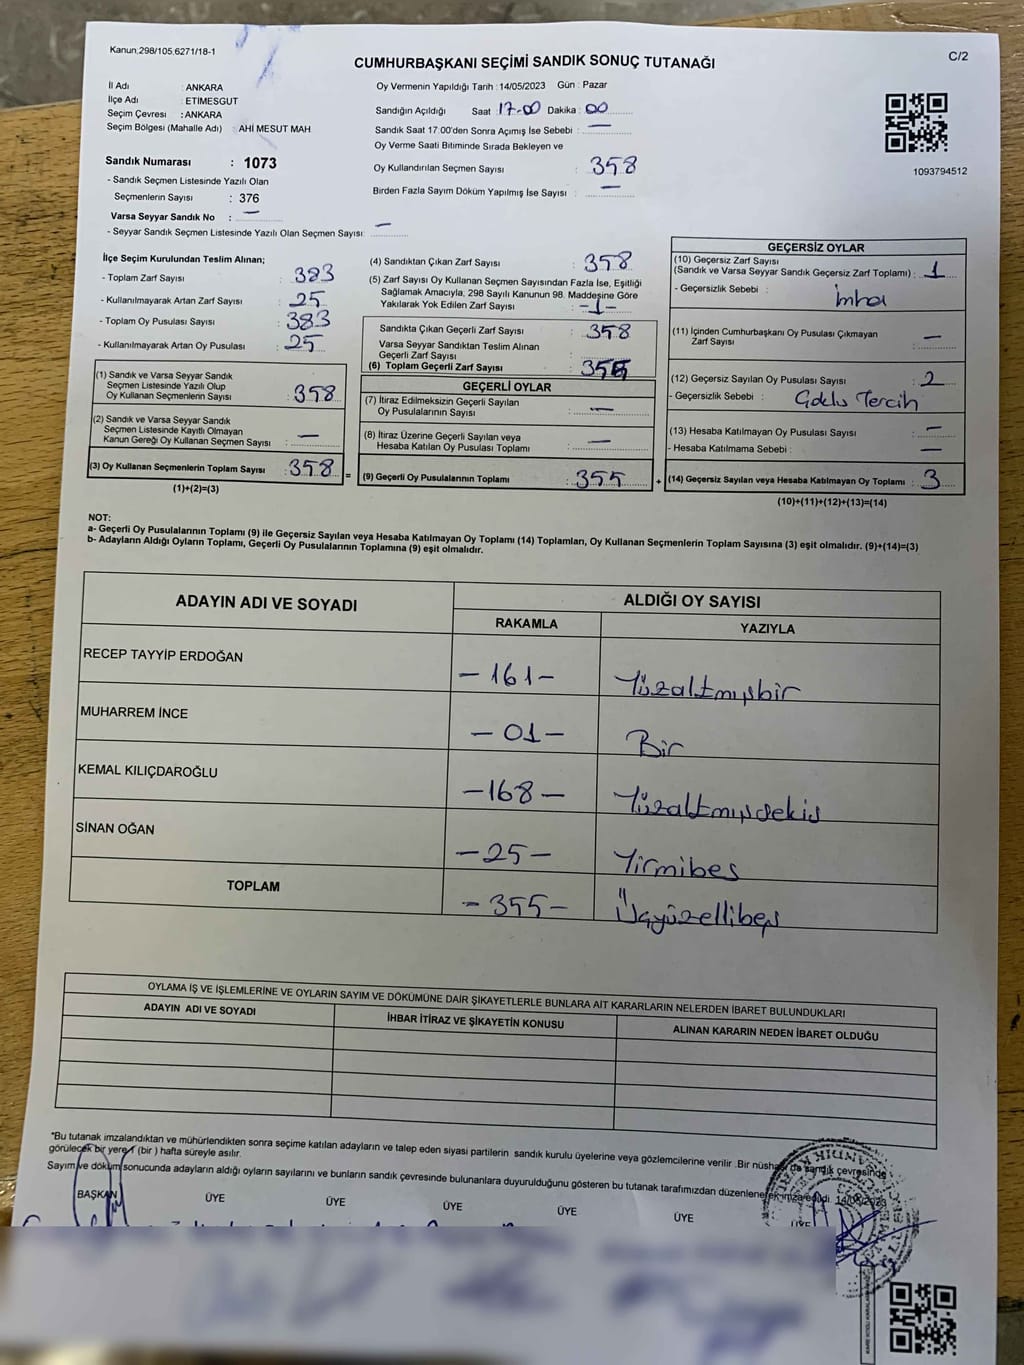 Kanun:298/105.6271/18-1
C/2
CUMHURBAŞKANI SEÇİMİ SANDIK SONUÇ TUTANAĞI
İl Adı : ANKARA
İlçe Adı : ETİMESGUT
Seçim Çevresi : ANKARA
Seçim Bölgesi (Mahalle Adı) : AHİ MESUT MAH
Sandık Numarası : 1073
- Sandık Seçmen Listesinde Yazılı Olan
Seçmenlerin Sayısı : 376
Varsa Seyyar Sandık No : —
- Seyyar Sandık Seçmen Listesinde Yazılı Olan Seçmen Sayısı: —
Oy Vermenin Yapıldığı Tarih : 14/05/2023 Gün : Pazar
Sandığın Açıldığı Saat : 17-00 Dakika : 00
Sandık Saat 17:00'den Sonra Açımış İse Sebebi : —
Oy Verme Saati Bitiminde Sırada Bekleyen ve
Oy Kullandırılan Seçmen Sayısı : 358
Birden Fazla Sayım Döküm Yapılmış İse Sayısı : —
1093794512
İlçe Seçim Kurulundan Teslim Alınan;
- Toplam Zarf Sayısı : 383
- Kullanılmayarak Artan Zarf Sayısı : 25
- Toplam Oy Pusulası Sayısı : 383
- Kullanılmayarak Artan Oy Pusulası : 25
(1) Sandık ve Varsa Seyyar Sandık
Seçmen Listesinde Yazılı Olup
Oy Kullanan Seçmenlerin Sayısı : 358
(2) Sandık ve Varsa Seyyar Sandık
Seçmen Listesinde Kayıtlı Olmayan
Kanun Gereği Oy Kullanan Seçmen Sayısı : —
(3) Oy Kullanan Seçmenlerin Toplam Sayısı : 358 =
(1)+(2)=(3)
(4) Sandıktan Çıkan Zarf Sayısı : 358
(5) Zarf Sayısı Oy Kullanan Seçmen Sayısından Fazla İse, Eşitliği
Sağlamak Amacıyla, 298 Sayılı Kanunun 98. Maddesine Göre
Yakılarak Yok Edilen Zarf Sayısı : -1-
Sandıkta Çıkan Geçerli Zarf Sayısı : 358
Varsa Seyyar Sandıktan Teslim Alınan
Geçerli Zarf Sayısı :
(6) Toplam Geçerli Zarf Sayısı :
GEÇERLİ OYLAR
(7) İtiraz Edilmeksizin Geçerli Sayılan
Oy Pusulalarının Sayısı : —
(8) İtiraz Üzerine Geçerli Sayılan veya
Hesaba Katılan Oy Pusulası Toplamı : —
(9) Geçerli Oy Pusulalarının Toplamı : 355 +
GEÇERSİZ OYLAR
(10) Geçersiz Zarf Sayısı
(Sandık ve Varsa Seyyar Sandık Geçersiz Zarf Toplamı) : 1
- Geçersizlik Sebebi : imha
(11) İçinden Cumhurbaşkanı Oy Pusulası Çıkmayan
Zarf Sayısı : —
(12) Geçersiz Sayılan Oy Pusulası Sayısı : 2
- Geçersizlik Sebebi : Çoklu Tercih
(13) Hesaba Katılmayan Oy Pusulası Sayısı : —
- Hesaba Katılmama Sebebi : —
(14) Geçersiz Sayılan veya Hesaba Katılmayan Oy Toplamı : 3
(10)+(11)+(12)+(13)=(14)
NOT:
a- Geçerli Oy Pusulalarının Toplamı (9) ile Geçersiz Sayılan veya Hesaba Katılmayan Oy Toplamı (14) Toplamları, Oy Kullanan Seçmenlerin Toplam Sayısına (3) eşit olmalıdır. (9)+(14)=(3)
b- Adayların Aldığı Oyların Toplamı, Geçerli Oy Pusulalarının Toplamına (9) eşit olmalıdır.
ADAYIN ADI VE SOYADI
ALDIĞI OY SAYISI
RAKAMLA YAZIYLA
RECEP TAYYİP ERDOĞAN -161- Yüzaltmışbir
MUHARREM İNCE -01- Bir
KEMAL KILIÇDAROĞLU -168- Yüzaltmışsekiz
SİNAN OĞAN -25- Yirmibeş
TOPLAM -355- Üçyüzellibeş
OYLAMA İŞ VE İŞLEMLERİNE VE OYLARIN SAYIM VE DÖKÜMÜNE DAİR ŞİKAYETLERLE BUNLARA AİT KARARLARIN NELERDEN İBARET BULUNDUKLARI
ADAYIN ADI VE SOYADI İHBAR İTİRAZ VE ŞİKAYETİN KONUSU ALINAN KARARIN NEDEN İBARET OLDUĞU
*Bu tutanak imzalandıktan ve mühürlendikten sonra seçime katılan adayların ve talep eden siyasi partilerin sandık kurulu üyelerine veya gözlemcilerine verilir .Bir nüshası da sandık çevresinde
görülecek bir yere 1 (bir ) hafta süreyle asılır.
Sayım ve döküm sonucunda adayların aldığı oyların sayılarını ve bunların sandık çevresinde bulunanlara duyurulduğunu gösteren bu tutanak tarafımızdan düzenlenerek imza edildi. 14/05/2023
BAŞKAN ÜYE ÜYE ÜYE ÜYE ÜYE ÜYE